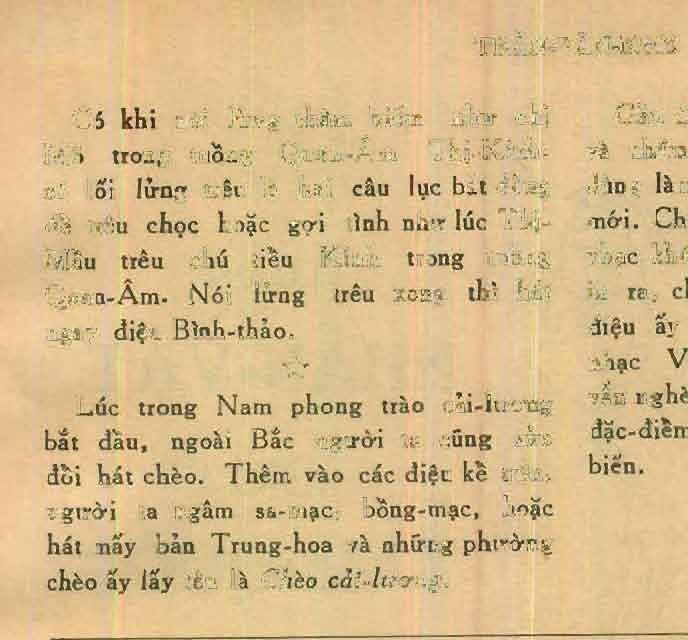 Có khi nói lửng thêm biến như chị
Mồ trong tuồng Quan-Âm Thị-Kính.
lối lửng trêu là hai câu lục bát dùng
để trêu chọc hoặc gợi tình như lúc Thị-
Mầu trêu chú tiểu Kính trong tuồng
Quan-Âm. Nói lửng trêu xong thì hát
ngay điệu Bình-thảo.
Lúc trong Nam phong trào cải-lương
bắt đầu, ngoài Bắc người ta cũng sửa
đổi hát chèo. Thêm vào các điệu kể trên,
người ta ngâm sa-mạc, bồng-mạc, hoặc
hát mấy bản Trung-hoa và những phường
chèo ấy lấy tên là Chèo cải-lương.
Cần
và những
dùng làm
mới. Ch
nhạc
ra, ch
điệu ấy
nhạc V
vẫn nghè
đặc-điểm
biến.